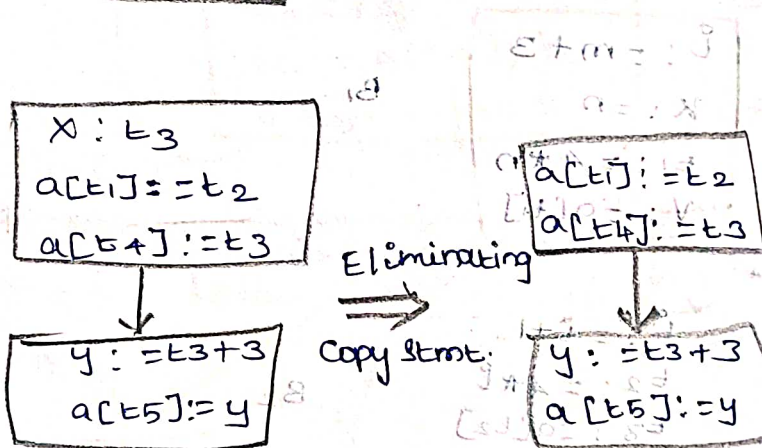 x : t3
a[t1] : = t2
a[t4] := t3
y : = t3+3
a[t5] := y
Eliminating
Copy Stmt.
a[t1] : = t2
a[t4] : = t3
y : = t3+3
a[t5] : = y